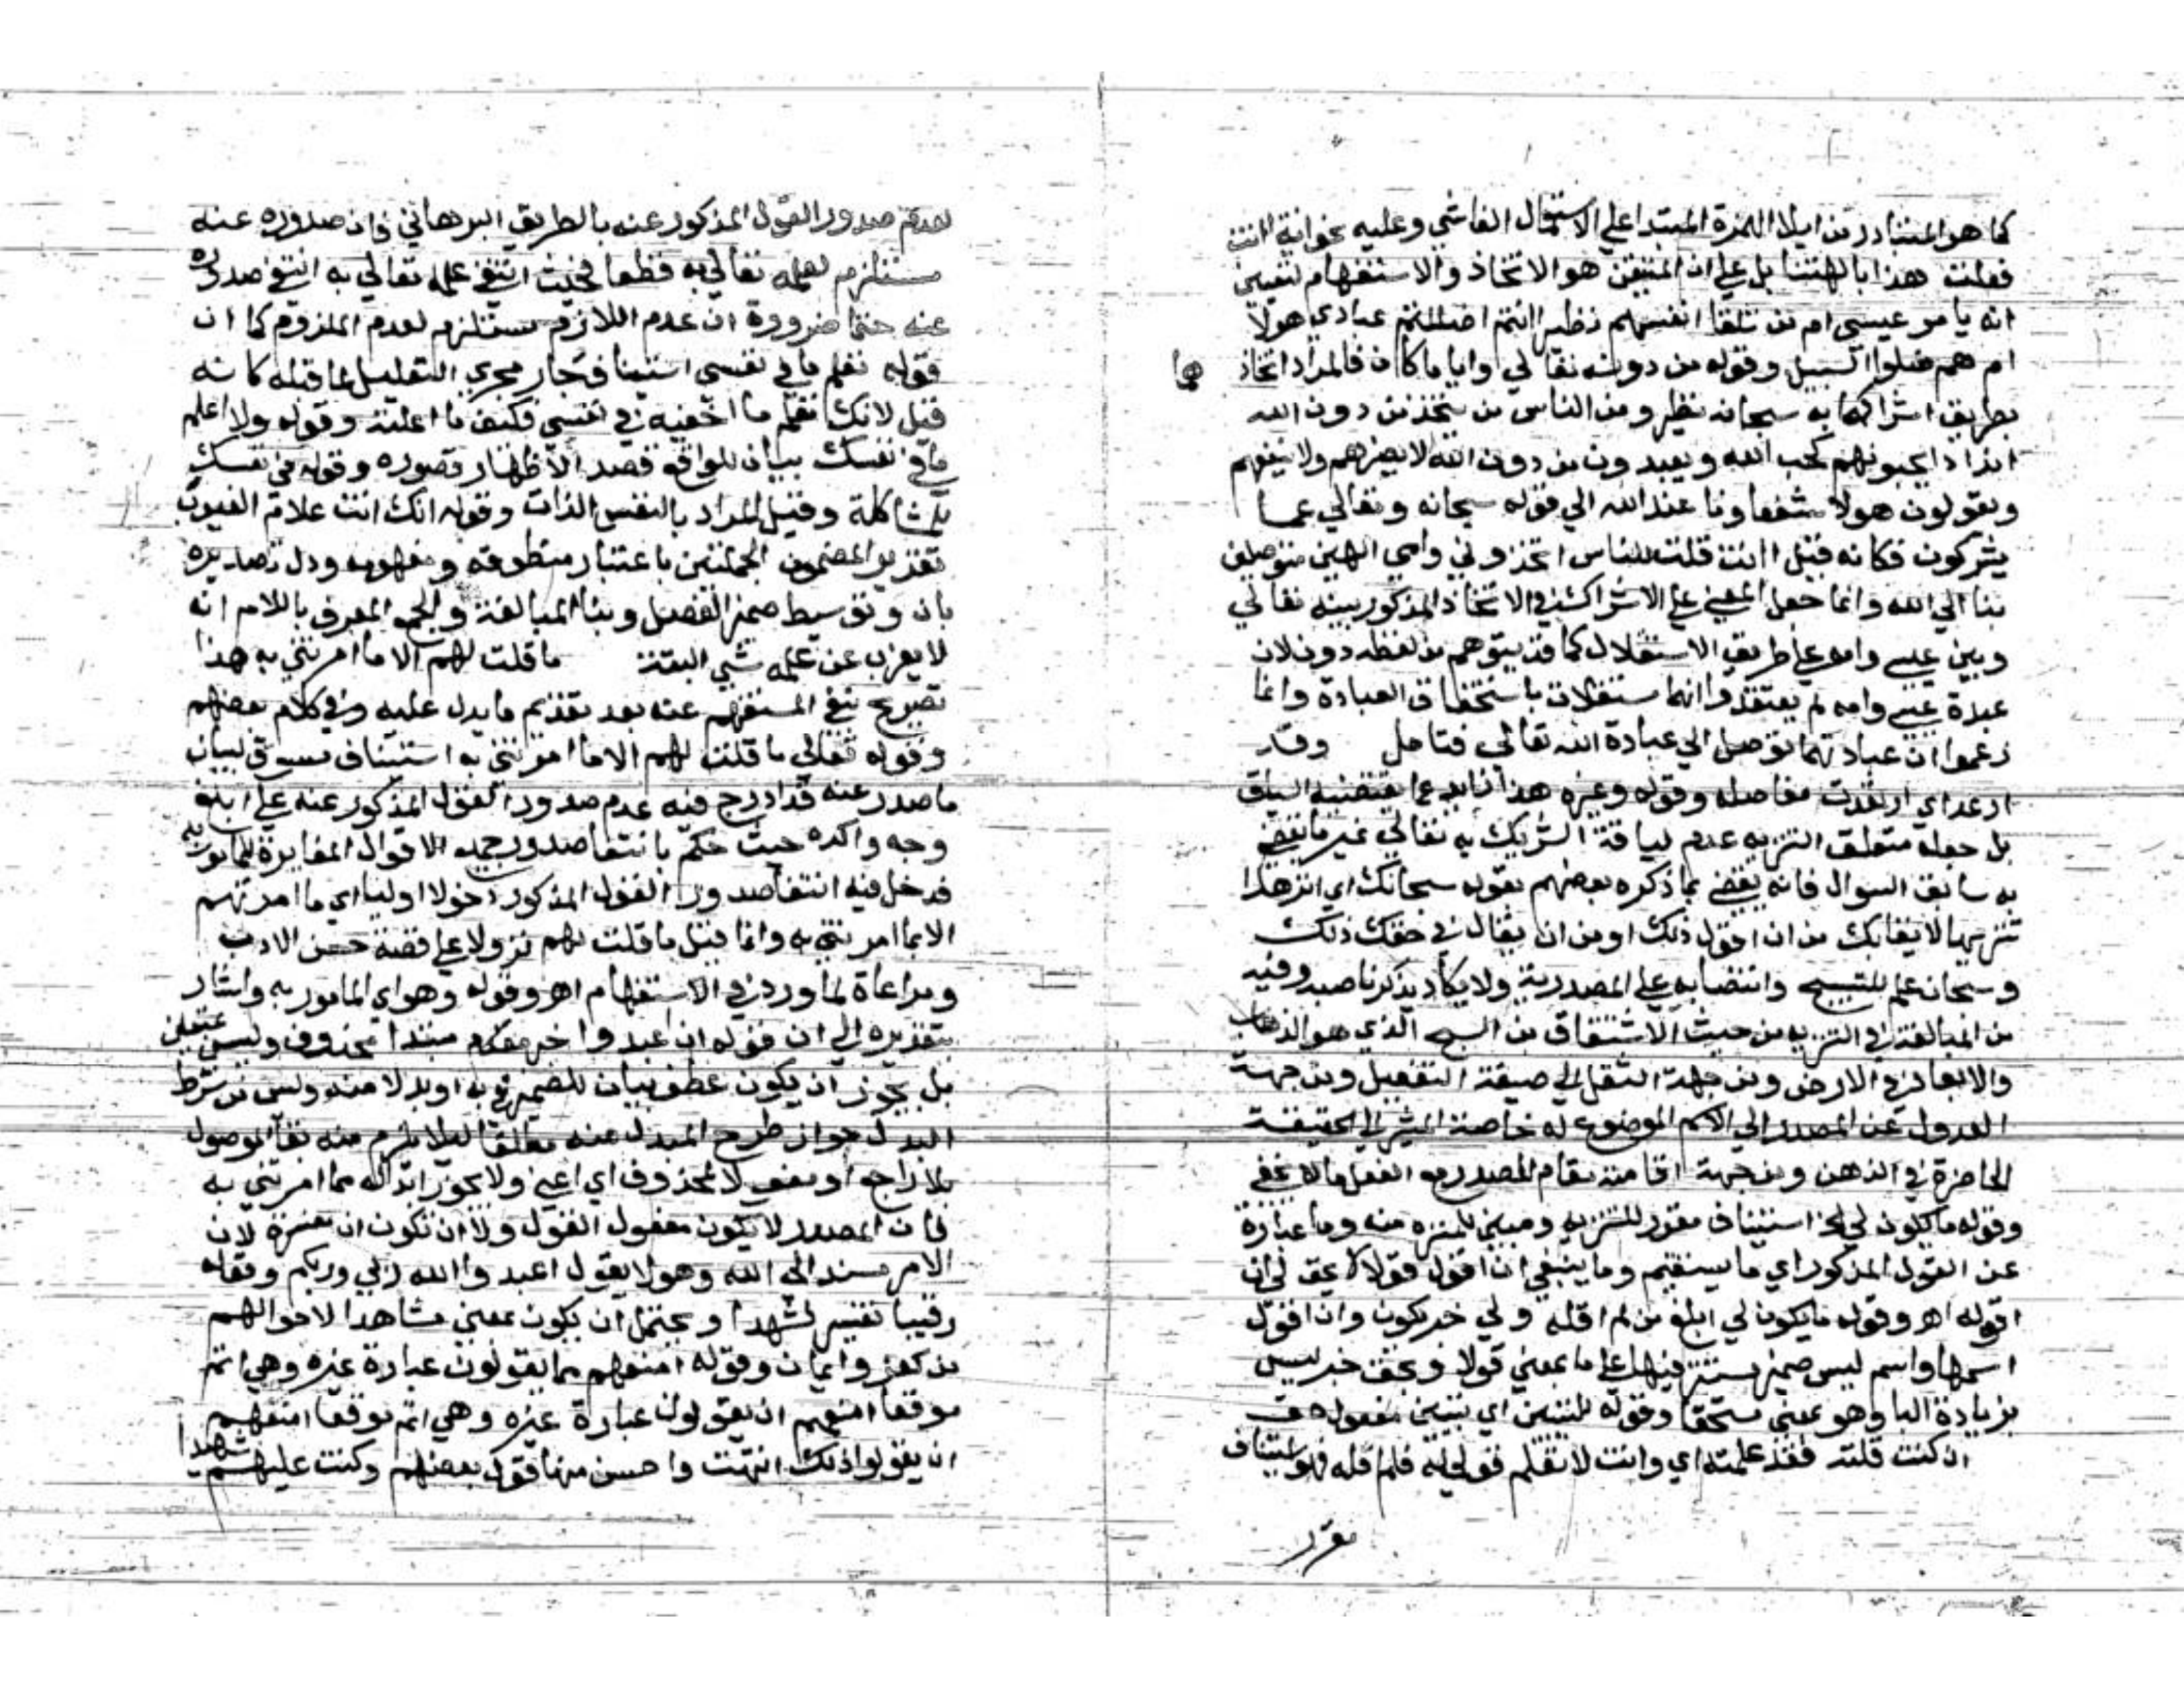 كما هو المتبادر من ايلاء الهمزة المبتدا علي الاستعمال الفاشي وعليه نحو اانت
فعلت هذا بالهتنا بل علي ان المتيقن هو الاتخاذ والاستفهام لتعيين
انه يامر عيسى ام من تلقا انفسهم نظير اانتم اضللتم عبادي هولا
ام هم ضلوا السبيل وقوله من دونه تعالي وايا ما كان فالمراد اتخاذ هما
بطريق اشراكهما به سبحانه نظير ومن الناس من يتخذ من دون الله
اندادا يحبونهم كحب الله ويعبدون من دون الله لا يضرهم ولا ينفعهم
ويقولون هولا شفعاونا عند الله الي قوله سبحانه وتعالي عما
يشركون فكانه قيل اانت قلت للناس اتخذوني وامي الهين متوصلين
بنا الي الله وانما جعل المعني علي الاشراك في الاتخاذ المذكور بينه تعالي
وبين عيسى وامه علي طريق الاستقلال كما قد يتوهم من لفظه دون لان
عبدة عيسى وامه لم يعتقدوا انهما مستقلان باستحقاق العبادة وانما
زعموا ان عبادتهما توصل الي عبادة الله تعالي فتامل وقد
ارعد اي ارتعدت مفاصله وقوله وغيره هذا لما يقتضيه السياق
بل جعله متعلق التنزيه عدم لياقة الشريك به تعالي غير ما يقتضي
به سابق السوال فانه يقضي بما ذكره بعضهم بقوله سبحانك اي انزهك
تنزيها لا يقابك من ان اقول ذلك او من ان يقال في حقك ذلك
وسبحان علم للتسبيح وانتصابه علي المصدرية ولا يكاد يذكر ناصبه وفيه
من المبالغة في التنزيه من حيث الاشتقاق من السبح الذي هو الذهاب
والابعاد في الارض ومن جهة النقل الي صيغة التفعيل ومن جهة
العدول عن المصدر الي الاسم الموضوع له خاصة المشير الي الحقيقة
الحاضرة في الذهن ومن جهة اقامته مقام المصدر مع الفعل ما لا يخفي
وقوله ما يكون لي الخ استيناف مقرر للتنزيه ومبين للمنزه منه وما عبارة
عن القول المذكور اي ما يستقيم وما ينبغي ان اقول قولا لا يحق لي ان
اقوله اهـ وقوله ما يكون لي ابلغ من لم اقله ولي خبر يكون وان اقول
اسمها واسم ليس ضمير مستتر فيها علي ما بمعني قولا وبحق خبر ليس
بزيادة البا وهو بمعني مستحقا وقوله للتبيين اي تبيين مفعول حق
ان كنت قلته فقد علمته اي وانت لا تعلم قولي له فلم اقله فهو استيناف
مقرر
لعدم صدور القول المذكور عنه بالطريق البرهاني فان صدوره عنه
مستلزم لعلمه تعالي به قطعا فحيث انتفي علمه تعالي به انتفي صدوره
عنه حتما ضرورة ان عدم اللازم مستلزم لعدم الملزوم كما ان
قوله تعلم ما في نفسي استيناف جار مجري التعليل لما قبله كانه
قيل لانك تعلم ما اخفيه في نفسي فكيف ما اعلنه وقوله ولا اعلم
ما في نفسك بيان للواقع قصد الاظهار قصوره وقوله في نفسك
للمشاكلة وقيل المراد بالنفس الذات وقوله انك انت علام الغيوب
تقرير لمضمون الجملتين باعتبار منطوقه ومفهومه ودل تصديره
بان وتوسيط ضمير الفصل وبنا المبالغة والجمع المعرف باللام انه
لا يعزب عن علمه شي البتة ما قلت لهم الا ما امرتني به هذا
تصريح بنفي المستفهم عنه بعد تقديم ما يدل عليه وفي كلام بعضهم
وقوله تعالي ما قلت لهم الا ما امرتني به استيناف مسوق لبيان
ما صدر عنه قد ادرج فيه عدم صدور القول المذكور عنه علي ابلغ
وجه واكده حيث حكم بانتفا صدور جميع الاقوال المغايرة للمامور به
فدخل فيه انتفا صدور القول المذكور دخولا اوليا اي ما امرتهم
الا بما امرتني به وانما قيل ما قلت لهم نزولا علي قضية حسن الادب
ومراعاة لما ورد في الاستفهام اهـ وقوله وهو اي المامور به واشار
بتقديره الي ان قوله ان اعبدوا خبر مبتدا محذوف وليس بمتعين
بل يجوز ان يكون عطف بيان للضمير في به او بدلا منه وليس من شرط
البدل جواز طرح المبدل منه مطلقا ليلا يلزم منه بقا الموصول
بلا راجع او مفعولا لمحذوف اي اعني ولا يجوز ابداله مما امرتني به
فان المصدر لا يكون مفعول القول ولا ان تكون ان مفسرة لان
الامر مسند الي الله وهو لا يقول اعبدوا الله ربي وربكم وقوله
رقيبا تفسير لشهيدا ويحتمل ان يكون بمعني مشاهدا لاحوالهم
من كفر وايمان وقوله امنعهم مما يقولون عبارة غيره وهي اتم
موقعا امنعهم ان يقولون عبارة غيره وهي اتم موقعا امنعهم
ان يقولوا ذلك انتهت واحسن منها قول بعضهم وكنت عليهم شهيدا